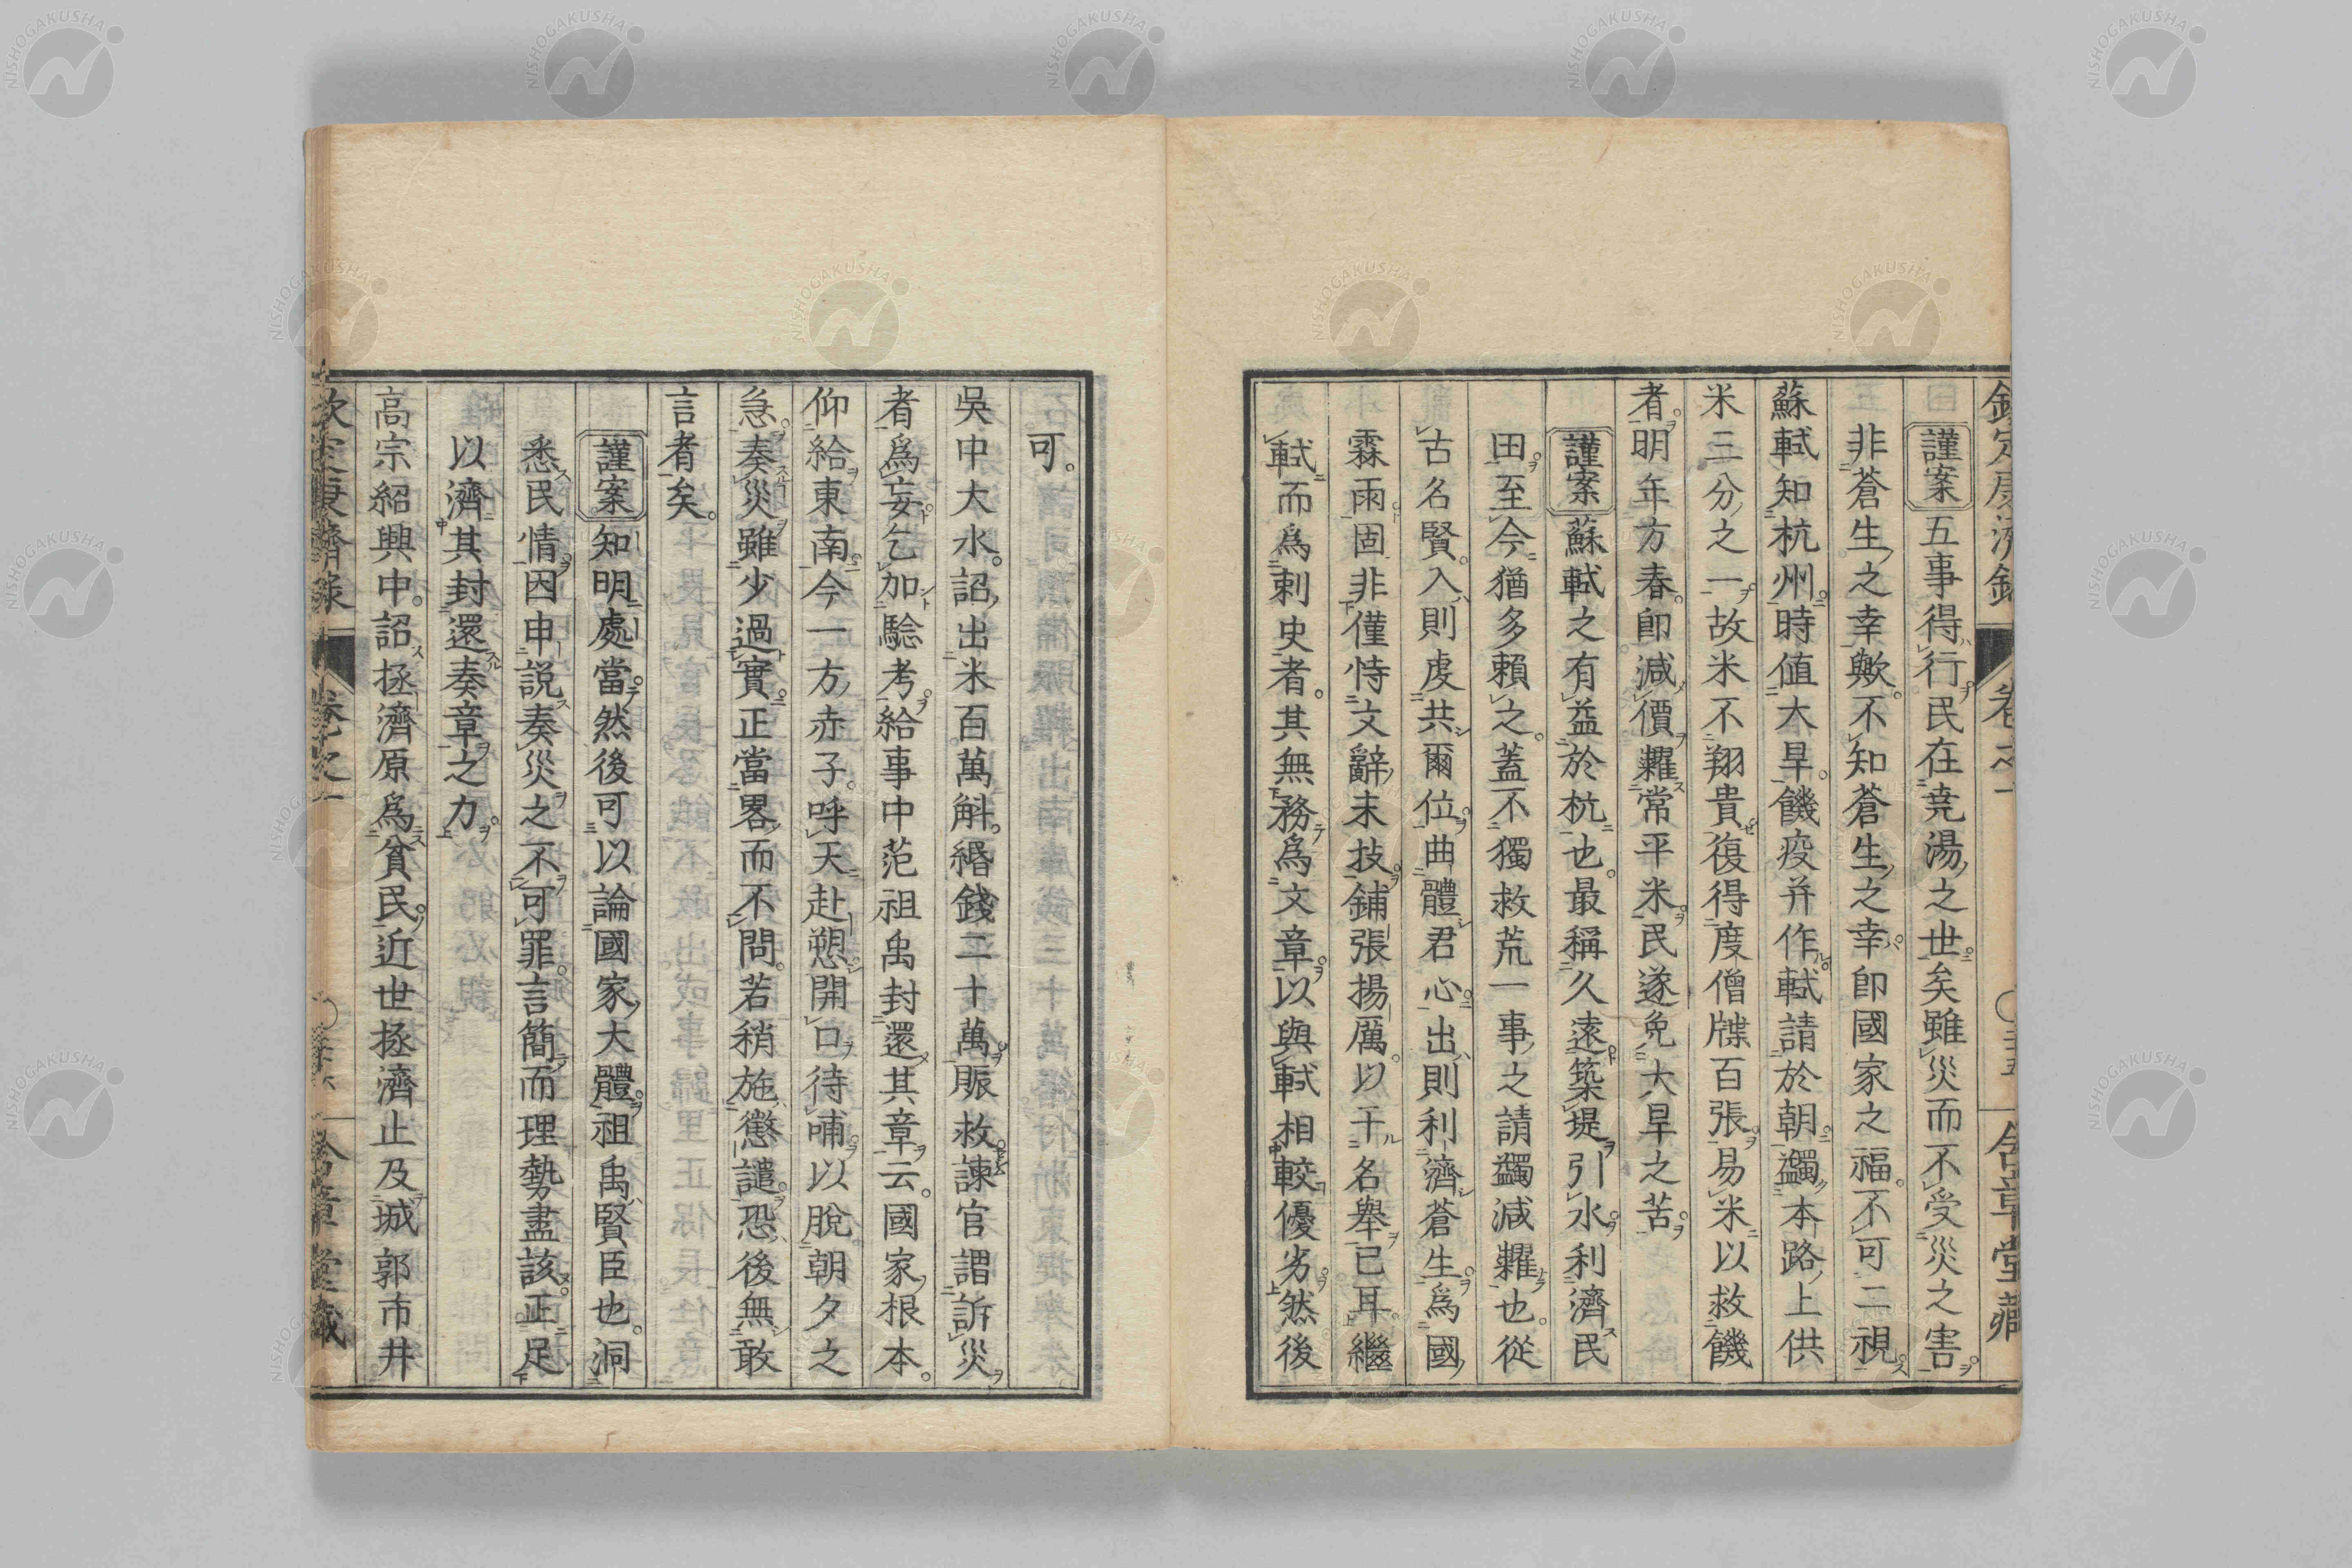 謹案五事得行民在堯湯之世矣雖災而不受災之害
非蒼生之幸歟不知蒼生之幸即國家之福不可二視
蘇軾知杭州時值大旱饑疫并作軾請於朝蠲本路上供
米三分之一故米不翔貴復得度僧牒百張易米以救饑
者明年方春即減價糶常平米民遂免大旱之苦
謹案蘇軾之有益於杭也最稱久遠築堤引水利濟民
田至今猶多賴之蓋不獨救荒一事之請蠲減糶也從
古名賢入則虔共爾位曲體君心出則利濟蒼生為國
霖雨固非僅恃文辭末技鋪張揚厲以干名舉已耳繼
軾而為刺史者其無務為文章以與軾相較優劣然後
可
吳中大水詔出米百萬斛緡錢二十萬賑救諫官謂訴災
者為妄乞加驗考給事中范祖禹封還其章云國家根本
仰給東南今一方赤子呼天赴愬開口待哺以脫朝夕之
急奏災雖少過實正當畧而不問若稍施懲譴恐後無敢
言者矣
謹案知明處當然後可以論國家大體祖禹賢臣也洞
悉民情因申說奏災之不可罪言簡而理勢盡該正足
以濟其封還奏章之力
高宗紹興中詔拯濟原為貧民近世拯濟止及城郭市井
欽定康濟錄 卷之一 含章堂藏